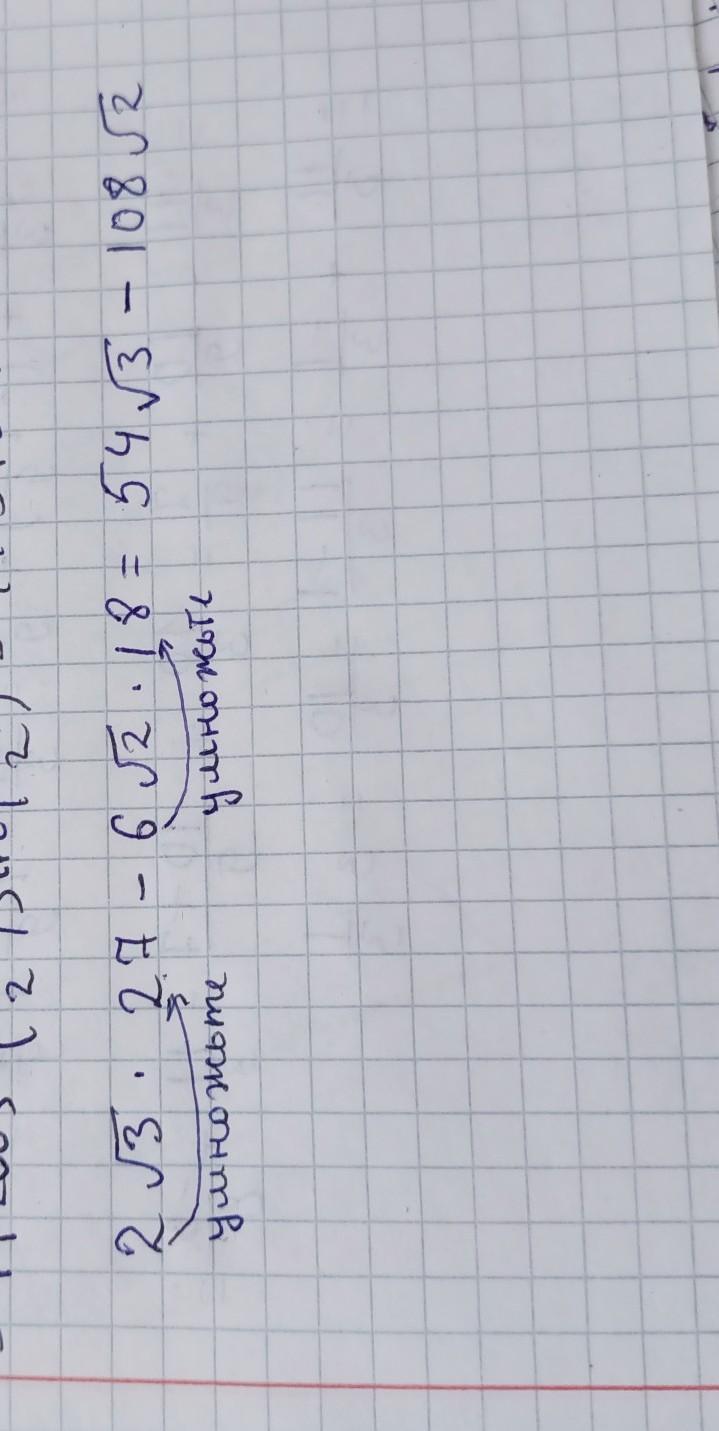 2√3 · 27 - 6√2 · 18 = 54√3 - 108√2
умножьте умножьте